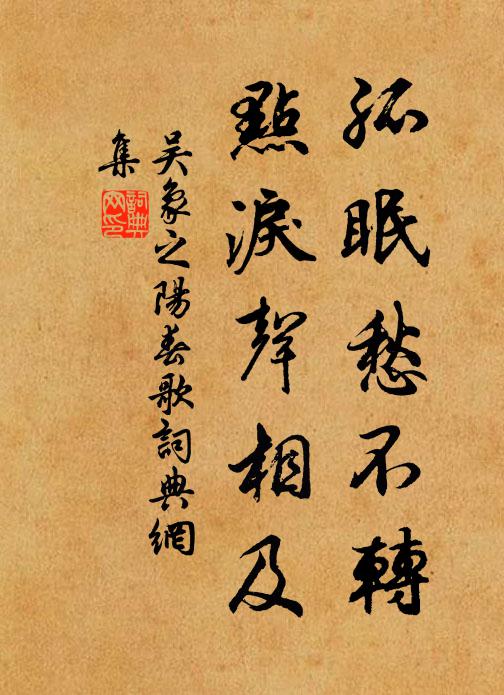 孤眠愁不轉
點淚聲相及
吳象之陽春歌詞典網
集
詞典网印